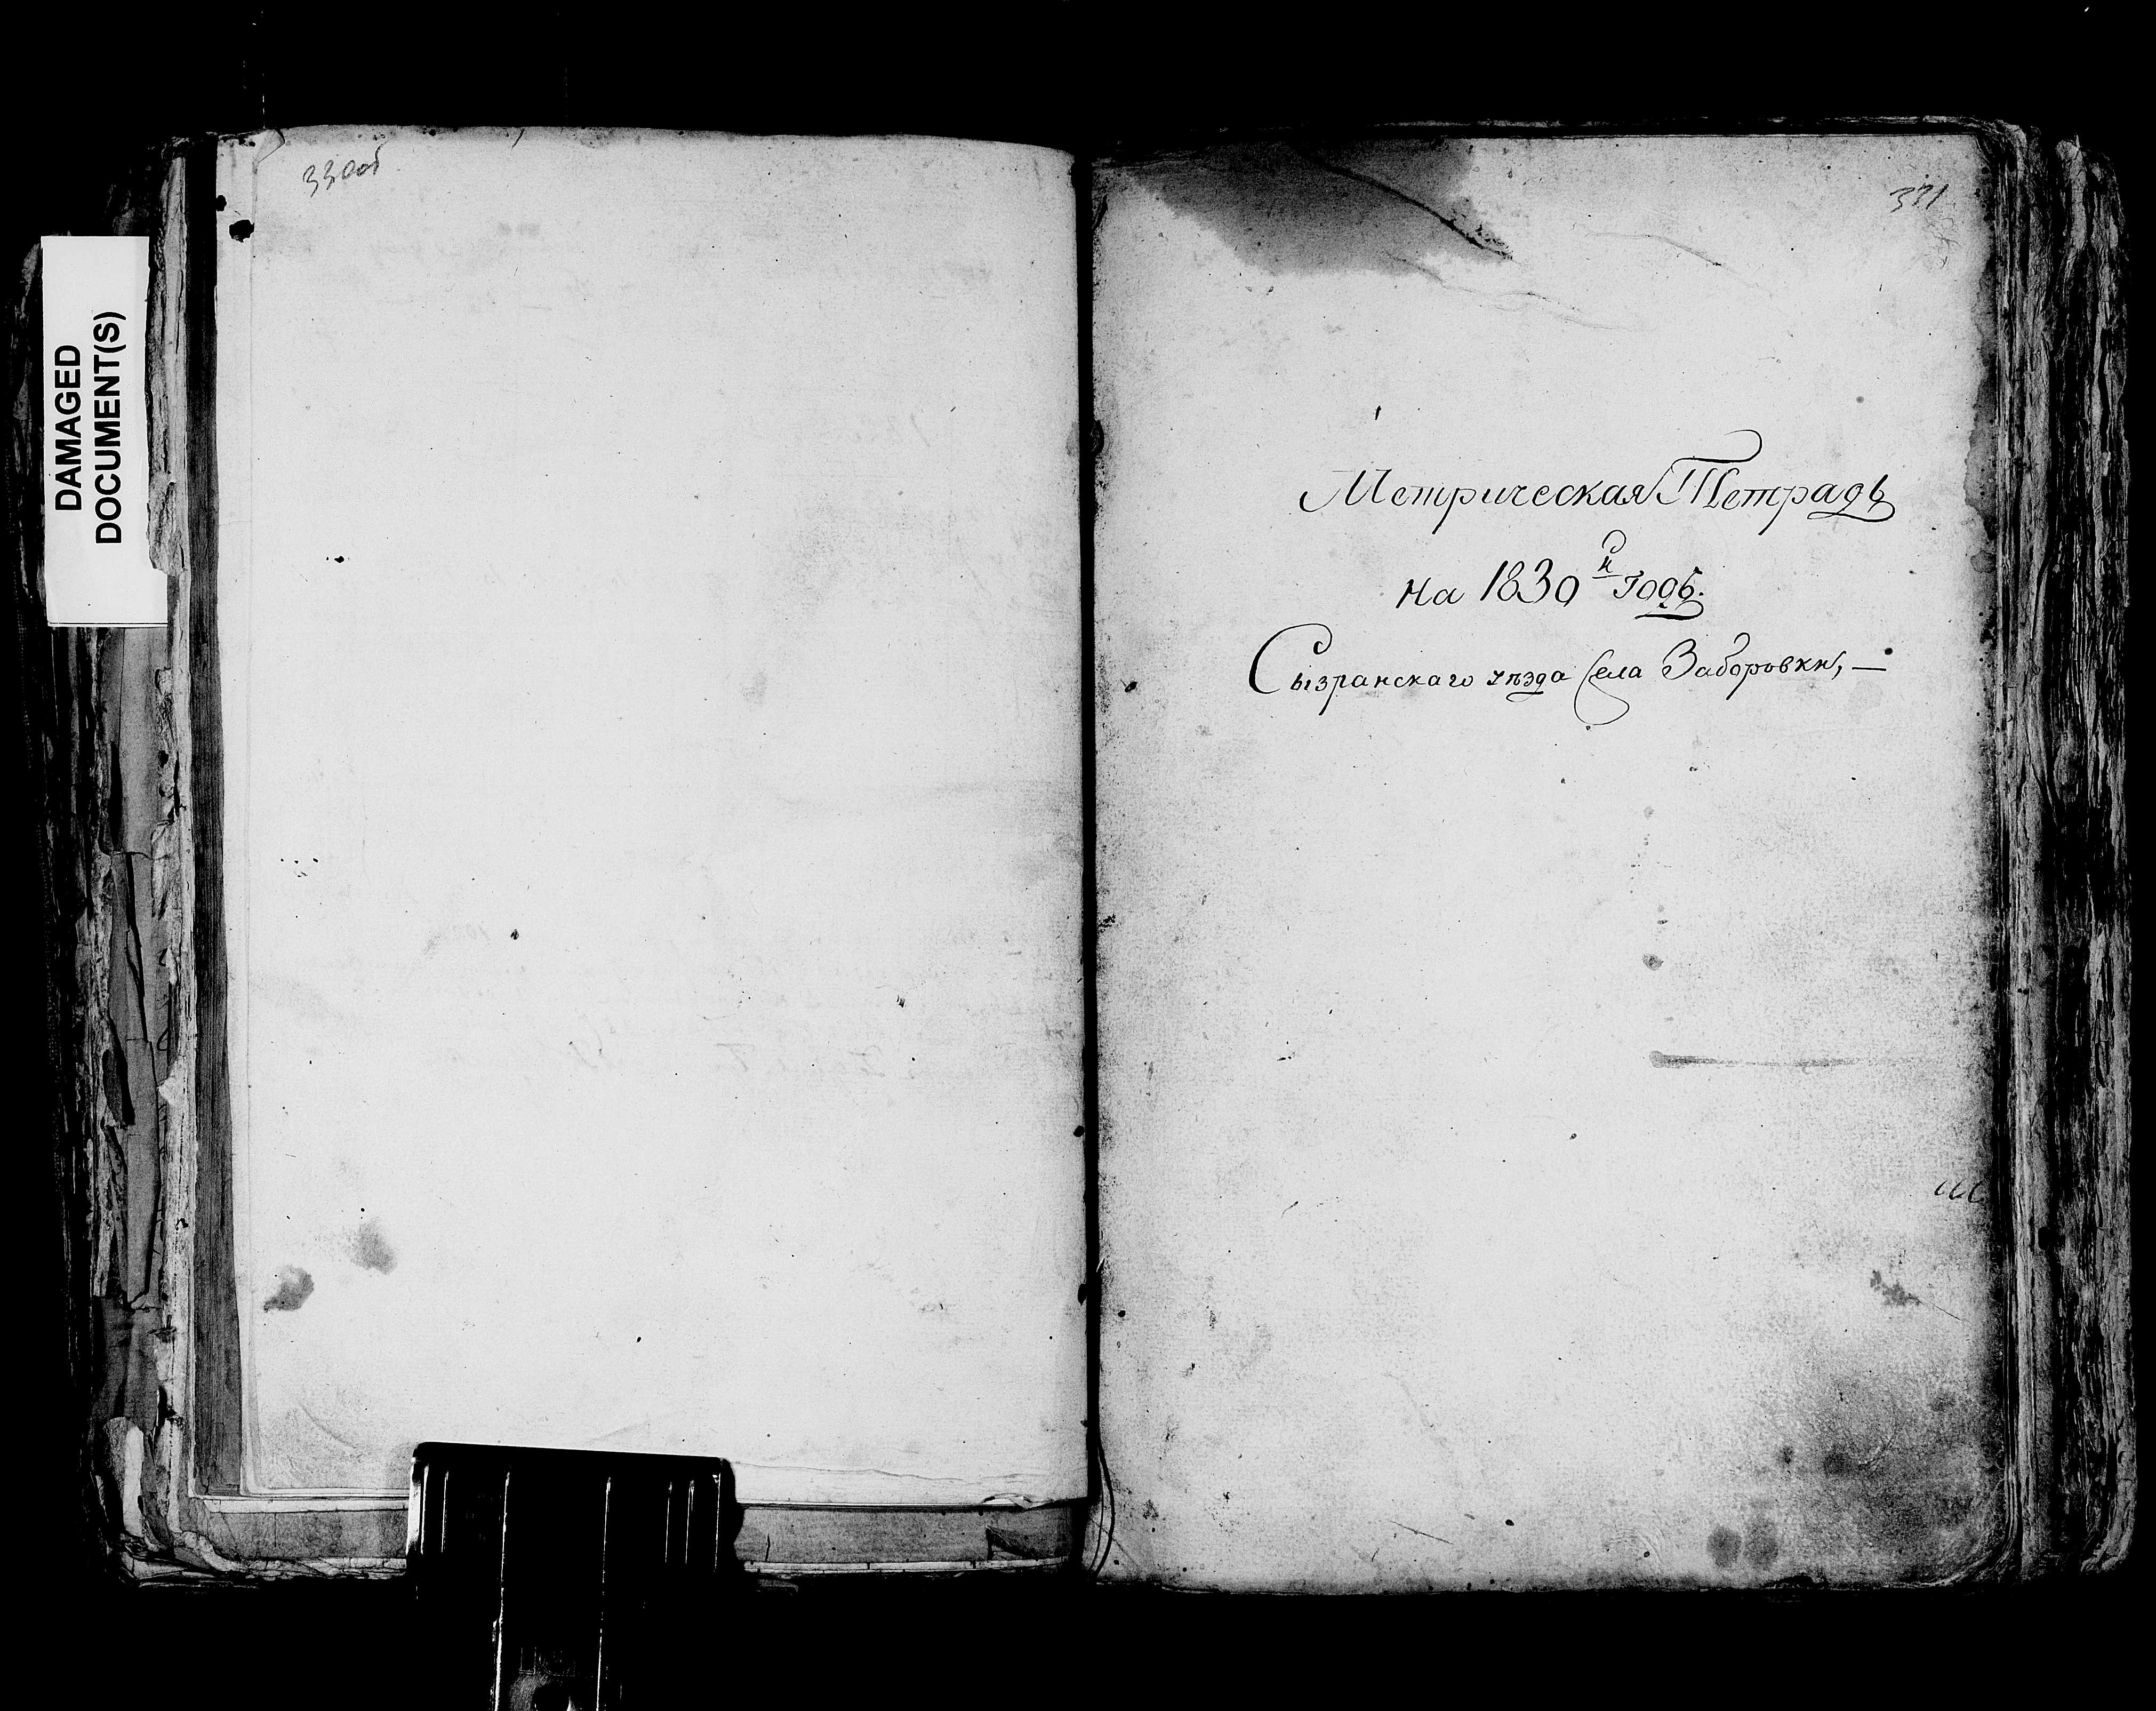 DAMAGED
DOCUMENT(S)
330об
371
Метрическая Тетрадь
на 1830й Годъ.
Сызранскаго уѣзда Села Заборовки, —